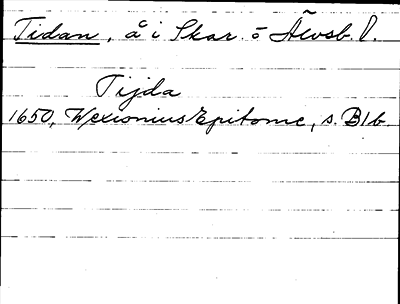 Tidan, å i Skar. o Älvsb. l.
Tijda
1650, Wexionius Epitome, s. B1b.